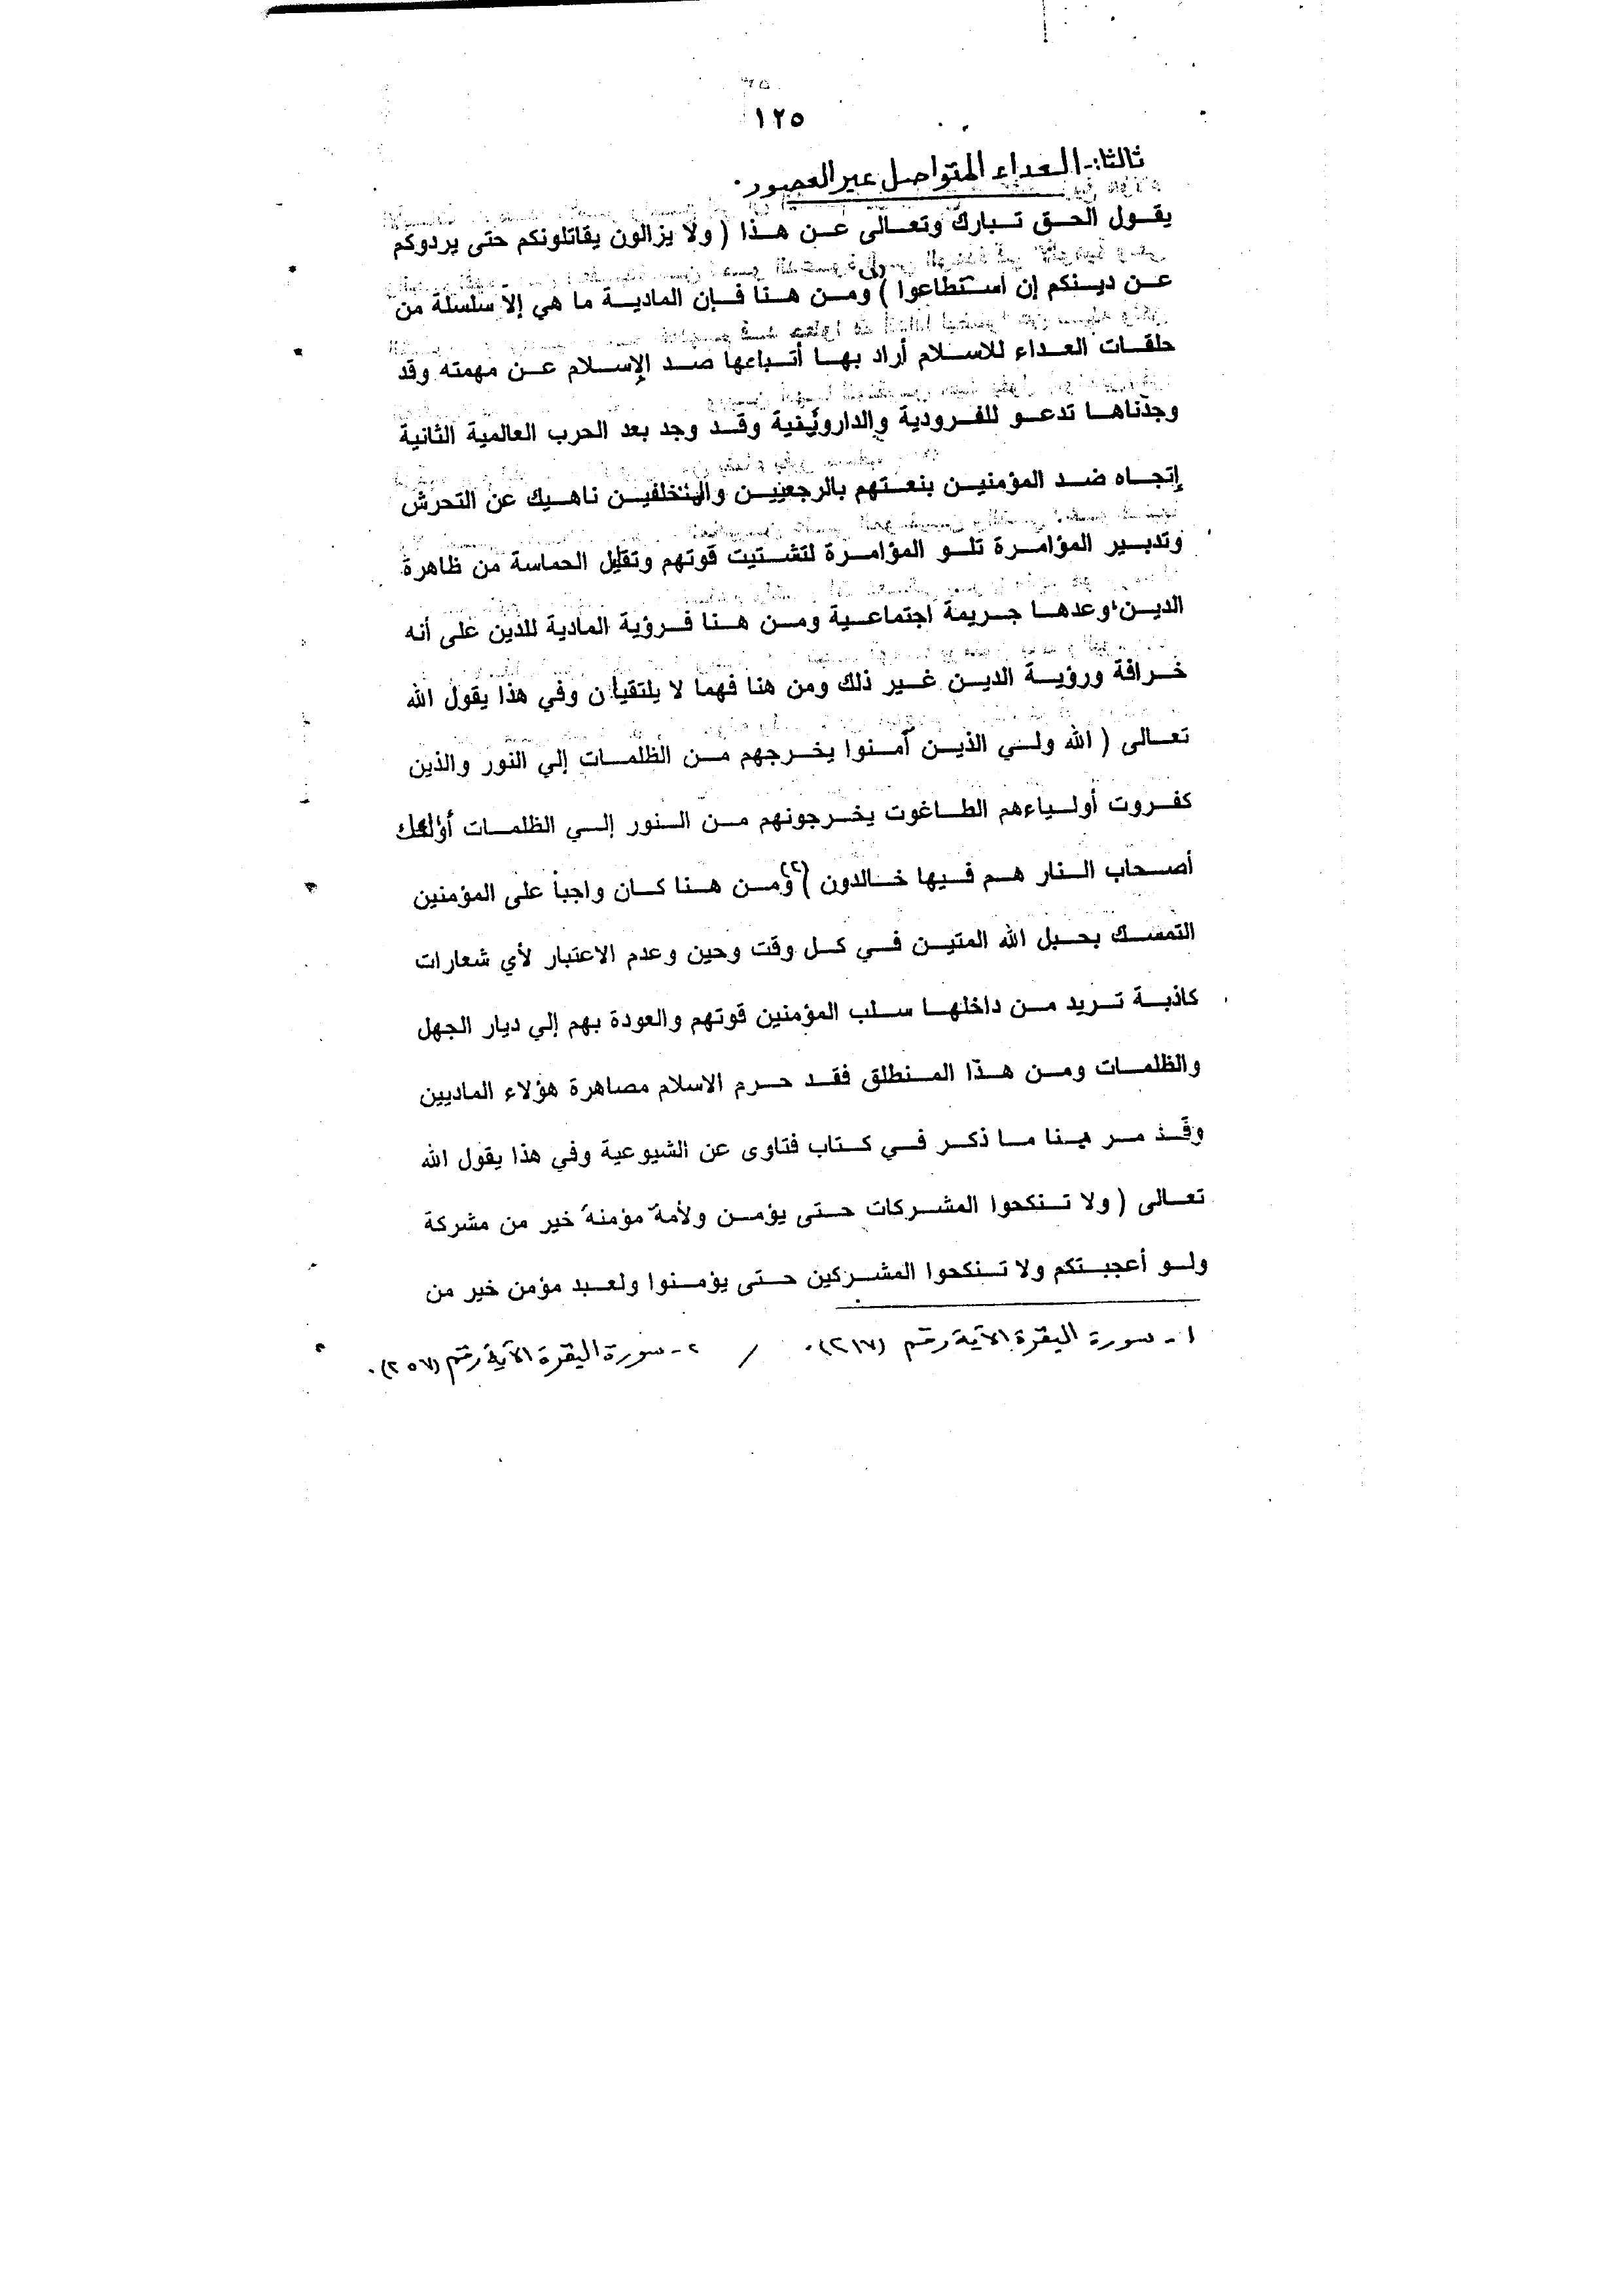 ١٢٥
ثالثا:- العداء المتواصل عبر العصور.
يقول الحق تبارك وتعالى عن هذا ( ولا يزالون يقاتلونكم حتى يردوكم
عن دينكم إن استطاعوا )(١) ومن هنا فإن المادية ما هي إلا سلسلة من
حلقات العداء للاسلام أراد بها أتباعها صد الإسلام عن مهمته وقد
وجدناها تدعو للفرودية والداروينية وقد وجد بعد الحرب العالمية الثانية
إتجاه ضد المؤمنين بنعتهم بالرجعيين والمتخلفين ناهيك عن التحرش
وتدبير المؤامرة تلو المؤامرة لتشتيت قوتهم وتقليل الحماسة من ظاهرة
الدين، وعدها جريمة اجتماعية ومن هنا فرؤية المادية للدين على أنه
خرافة ورؤية الدين غير ذلك ومن هنا فهما لا يلتقيان وفي هذا يقول الله
تعالى ( الله ولي الذين آمنوا يخرجهم من الظلمات إلي النور والذين
كفروت أولياءهم الطاغوت يخرجونهم من النور إلي الظلمات أولئك
أصحاب النار هم فيها خالدون )(٢) ومن هنا كان واجباً على المؤمنين
التمسك بحبل الله المتين في كل وقت وحين وعدم الاعتبار لأي شعارات
كاذبة تريد من داخلها سلب المؤمنين قوتهم والعودة بهم إلي ديار الجهل
والظلمات ومن هذا المنطلق فقد حرم الاسلام مصاهرة هؤلاء الماديين
وقد مر بنا ما ذكر في كتاب فتاوى عن الشيوعية وفي هذا يقول الله
تعالى ( ولا تنكحوا المشركات حتى يؤمن ولأمة مؤمنة خير من مشركة
ولو أعجبتكم ولا تنكحوا المشركين حتى يؤمنوا ولعبد مؤمن خير من
١- سورة البقرة الآية رقم (٢١٧). / ٢- سورة البقرة الآية رقم (٢٥٧).